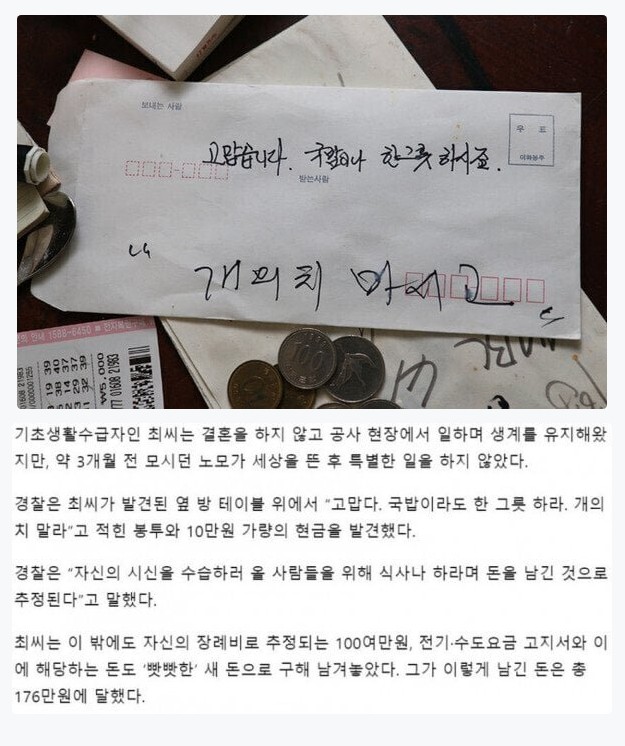 보내는 사람
우 표
고맙습니다. 국밥이나 한그릇 하시죠.
받는사람
“개의치 마시고”
100
1588-6450
₩5,000
기초생활수급자인 최씨는 결혼을 하지 않고 공사 현장에서 일하며 생계를 유지해왔
지만, 약 3개월 전 모시던 노모가 세상을 뜬 후 특별한 일을 하지 않았다.
경찰은 최씨가 발견된 옆 방 테이블 위에서 “고맙다. 국밥이라도 한 그릇 하라. 개의
치 말라”고 적힌 봉투와 10만원 가량의 현금을 발견했다.
경찰은 “자신의 시신을 수습하러 올 사람들을 위해 식사나 하라며 돈을 남긴 것으로
추정된다”고 말했다.
최씨는 이 밖에도 자신의 장례비로 추정되는 100여만원, 전기·수도요금 고지서와 이
에 해당하는 돈도 ‘빳빳한’ 새 돈으로 구해 남겨놓았다. 그가 이렇게 남긴 돈은 총
176만원에 달했다.